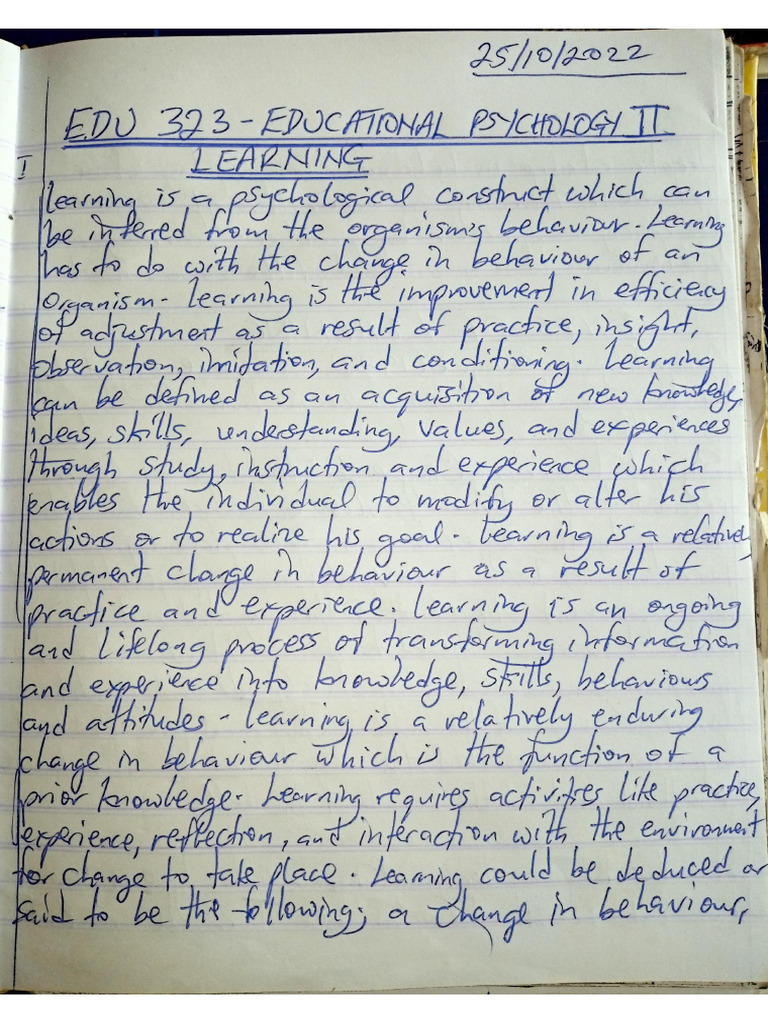 25/10/2022
EDU 323 - EDUCATIONAL PSYCHOLOGY II
I LEARNING
Learning is a psychological construct which can
be inferred from the organism's behaviour. Learning
has to do with the change in behaviour of an
Organism. Learning is the improvement in efficiency
of adjustment as a result of practice, insight,
observation, imitation, and conditioning. Learning
can be defined as an acquisition of new knowledge,
ideas, skills, understanding, values, and experiences
through study, instruction and experience which
enables the individual to modify or alter his
actions or to realize his goal. Learning is a relatively
permanent change in behaviour as a result of
practice and experience. Learning is an ongoing
and lifelong process of transforming information
and experience into knowledge, skills, behaviours
and attitudes - Learning is a relatively enduring
change in behaviour which is the function of a
prior knowledge. Learning requires activities like practice,
experience, reflection, and interaction with the environment
for change to take place. Learning could be deduced or
said to be the following; a change in behaviour,